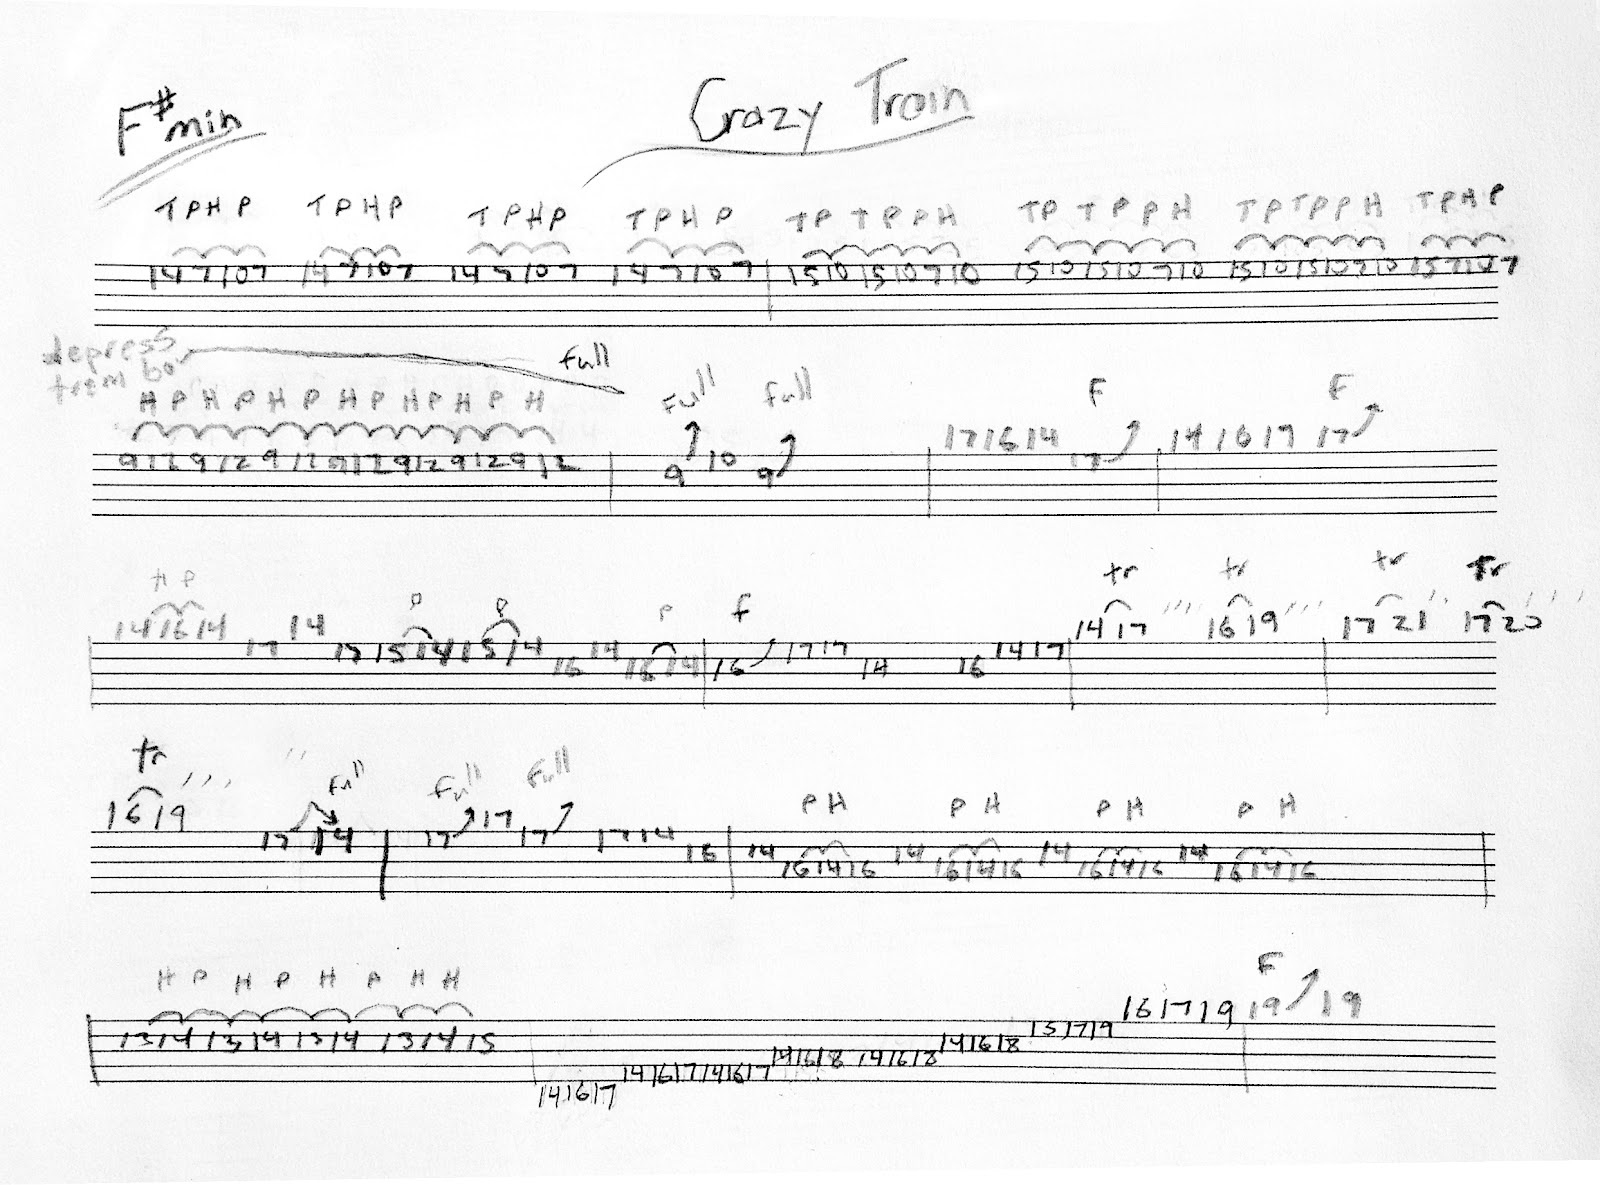 F#min Crazy Train
TPHP TPHP TPHP TPHP TP TPPH TP TPPH TPTPPH TPHP
14 7 10 7 14 7 10 7 14 7 10 7 14 7 10 7 15 10 15 10 7 10 15 10 15 10 7 10 15 10 15 10 7 10 15 7 10 7
depress full
trem bar
H P H P H P H P H P H P H Full full F F
9 12 9 12 9 12 9 12 9 12 9 12 9 12 9 10 9 17 16 14 17 14 16 17 17
H P P P P F tr tr tr tr
14 16 14 17 14 17 15 14 15 14 16 14 16 14 16 17 17 14 16 14 17 14 17 16 19 17 21 17 20
tr Full Full Full P H P H P H P H
16 19 17 14 17 17 17 17 14 16 14 16 14 16 14 16 14 16 14 16 14 16 14 16 14 16
H P H P H P H H F
13 14 13 14 13 14 13 14 15 14 16 17 14 16 17 14 16 17 14 16 18 14 16 18 14 16 18 15 17 19 16 17 19 19 19